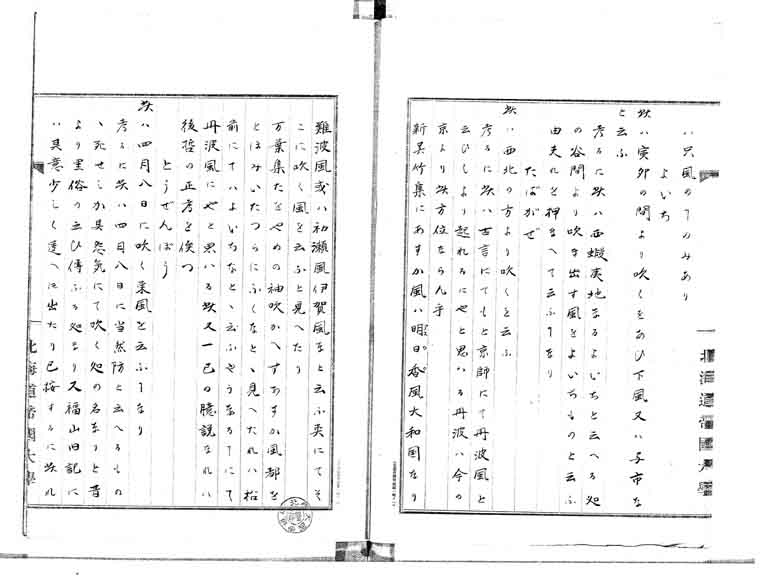 ハ只風のミてのミあり
よいち
此ハ寅卯の間より吹くをあひ下風又ハ与市な
と云ふ
考るに此ハ西蝦夷地なるよいちと云へる処
の谷間より吹き出す風をよいちものと云ふ
由夫れを押まへて云ふなり
たばかぜ
此ハ西北の方より吹くと云ふ
考るに此ハ古言にてもと京師にて丹波風と
云ひしより起れるにやと思ハる丹波ハ今の
京より此方位ならん乎
新呉竹集にあすか風ハ明日香風大和国なり
北海道帝国大学
難波風或ハ初瀬風伊賀風なと云ふ英にてそ
こに吹く風を云ふと見へたり
万葉集たをやめの袖吹かへすあすか風都を
とほみいたつらにふくなと、見へたれハ松
前にてハよいちなと、云ふやうなるてにて
丹波風にやと思ハる此又一已の臆説なれハ
後哲の正考を俟つ
とうぜんぼう
此ハ四月八日に吹く東風を云ふなり
考るに此ハ四月八日に当然防と云へるもの
、死せしか其怨気にて吹く処の名なりと昔
より里俗の云ひ傳ふる処なり又福山旧記に
ハ其意少しく違へて出たり已按するに此れ
北海道帝国大學